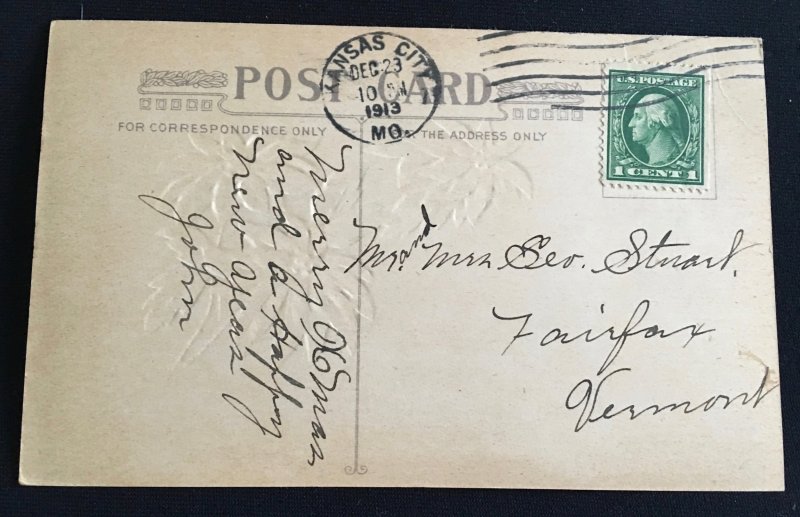 POST CARD
FOR CORRESPONDENCE ONLY
THE ADDRESS ONLY
KANSAS CITY
DEC 23
10
1913
MO.
U.S. POSTAGE
1 CENT 1
Merry Xmas
and a Happy
New Year
John
Mr. and Mrs Geo. Stuart.
Fairfax
Vermont